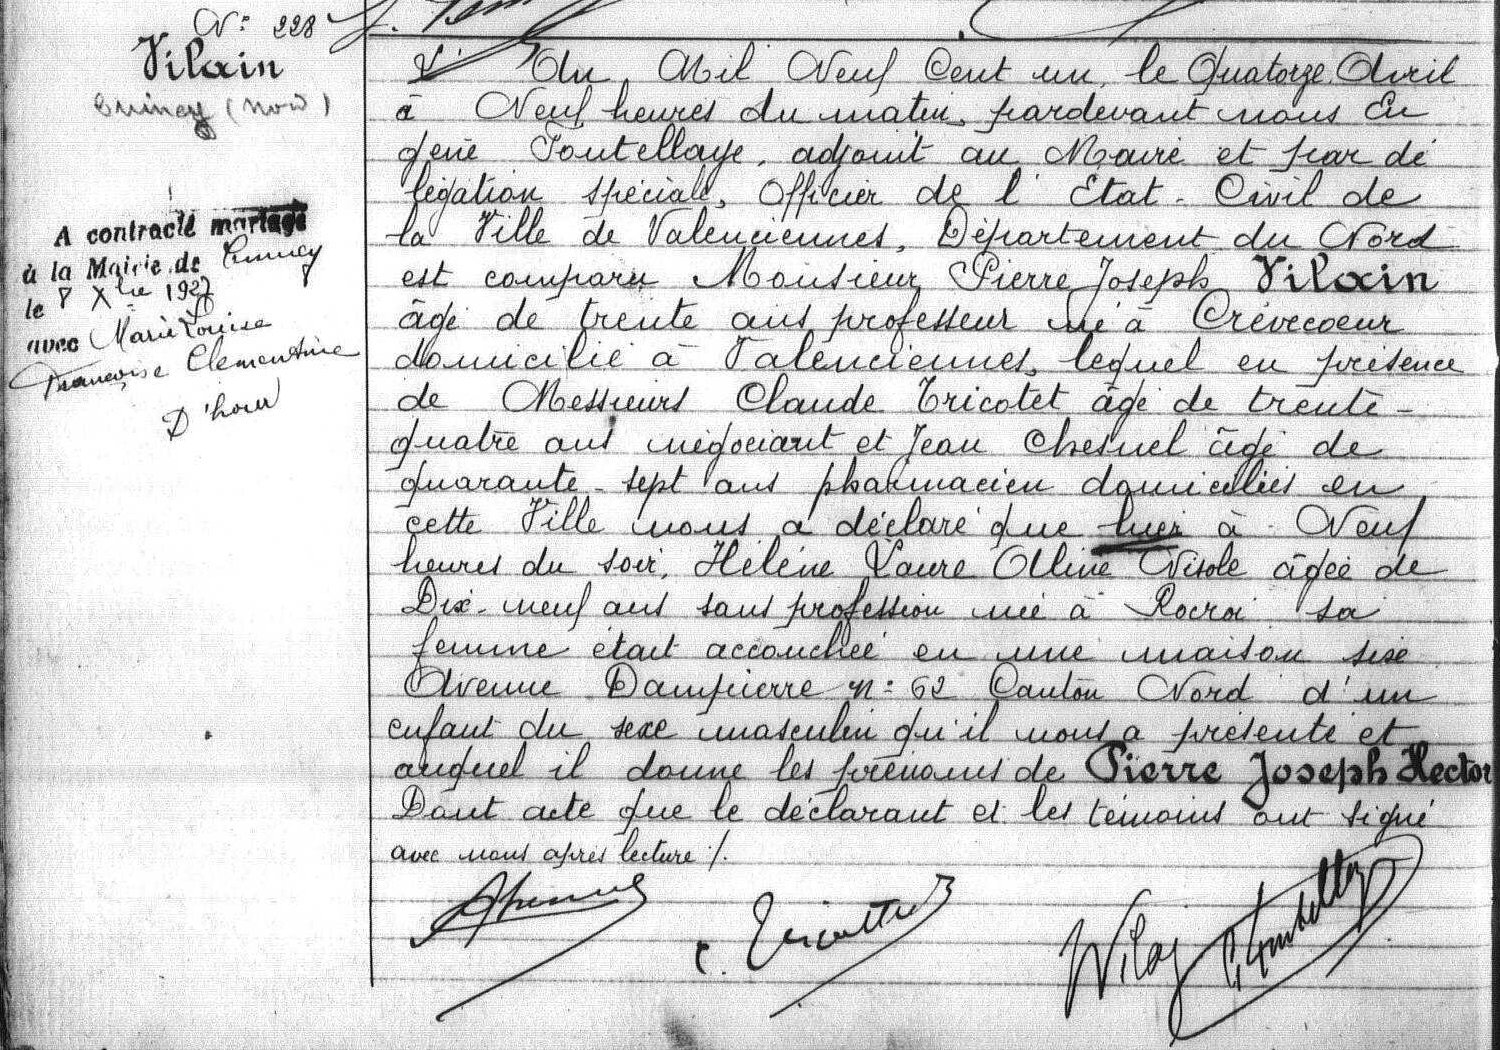 N° 228
Vilain
Cuincy (Nord)
A contracté mariage
à la Mairie de Cuincy
le 8 Xbre 1927
avec Marie Louise
Françoise Clementine
D'hour
L' An Mil Neuf Cent un, le Quatorze Avril
à Neuf heures du matin, pardevant nous Eu
gène Foutellaye, adjoint au Maire et par dé
légation spéciale, Officier de l' Etat-Civil de
la Ville de Valenciennes, Département du Nord
est comparu Monsieur Pierre Joseph Vilain
âgé de trente ans professeur né à Crèvecoeur
domicilié à Valenciennes, lequel en présence
de Messieurs Claude Tricotet âgé de trente-
quatre ans négociant et Jean Chesnel âgé de
quarante-sept ans pharmacien domiciliés en
cette Ville nous a déclaré que hier à Neuf
heures du soir, Hélène Laure Olline Nisole âgée de
Dix-neuf ans sans profession née à Rocroi sa
femme était accouchée en une maison sise
Avenue Dampierre n° 62 Canton Nord d'un
enfant du sexe masculin qu'il nous a présenté et
auquel il donne les prénoms de Pierre Joseph Hector
Dont acte que le déclarant et les témoins ont signé
avec nous après lecture /.